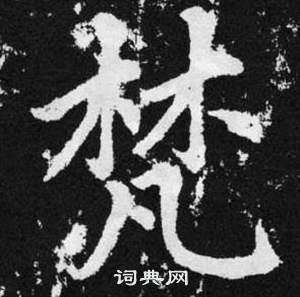 梵
词典网